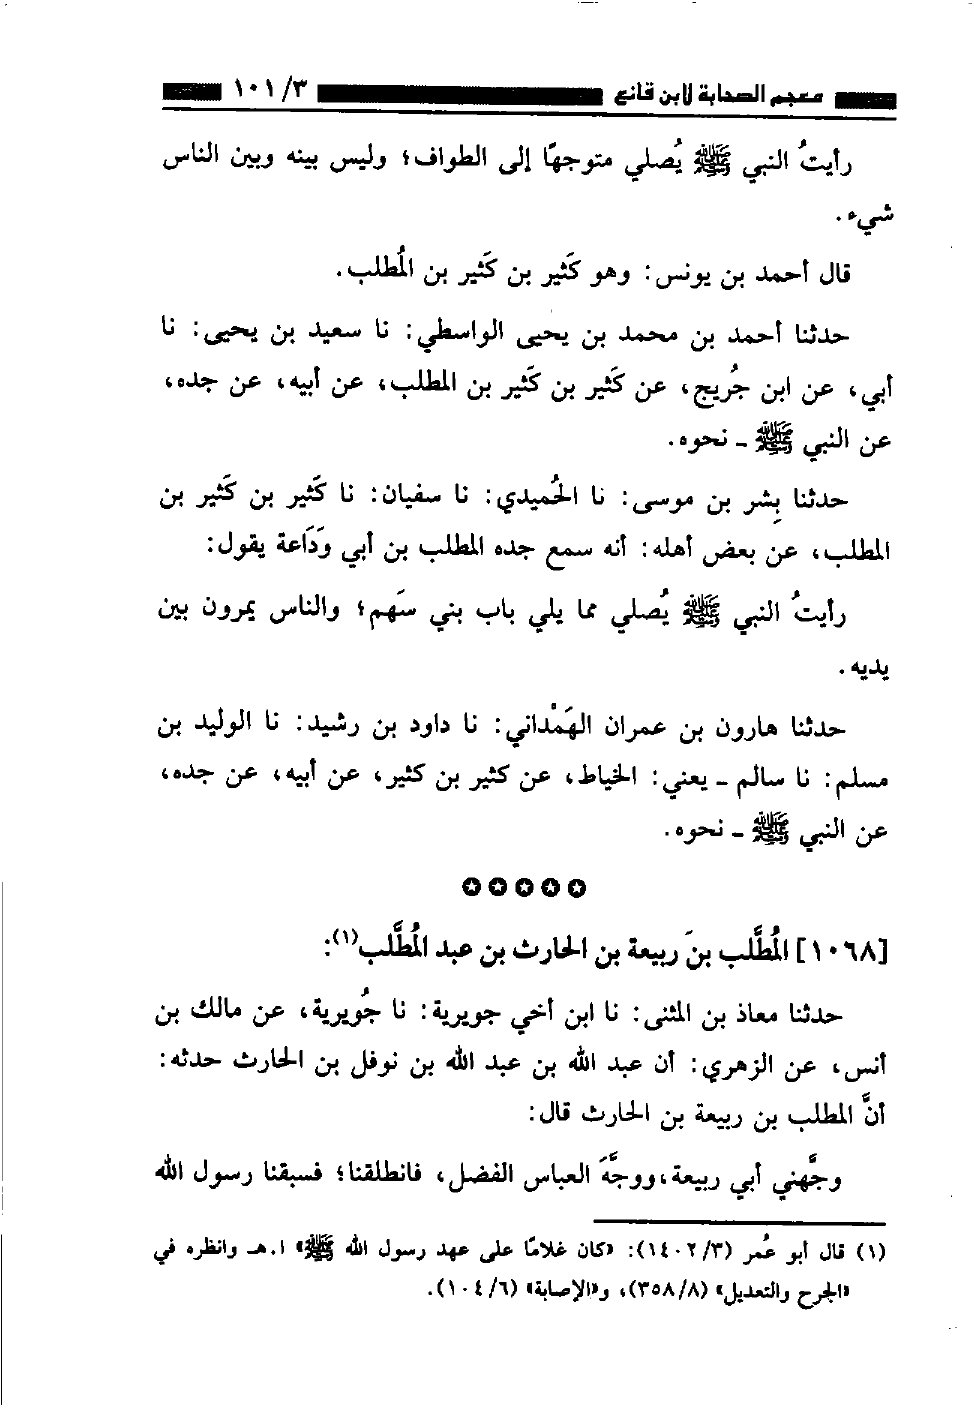 معجم الصحابة لابن قانع ١٠١/٣
رأيتُ النبي ﷺ يُصلي متوجهًا إلى الطواف؛ وليس بينه وبين الناس
شيء.
قال أحمد بن يونس: وهو كَثير بن كَثير بن المُطلب.
حدثنا أحمد بن محمد بن يحيى الواسطي: نا سعيد بن يحيى: نا
أبي، عن ابن جُريج، عن كَثير بن كَثير بن المطلب، عن أبيه، عن جده،
عن النبي ﷺ ـ نحوه.
حدثنا بِشر بن موسى: نا الحُميدي: نا سفيان: نا كَثير بن كَثير بن
المطلب، عن بعض أهله: أنه سمع جده المطلب بن أبي وَدَاعة يقول:
رأيتُ النبي ﷺ يُصلي مما يلي باب بني سَهم؛ والناس يمرون بين
يديه.
حدثنا هارون بن عمران الهَمْداني: نا داود بن رشيد: نا الوليد بن
مسلم: نا سالم ـ يعني: الخياط، عن كثير بن كثير، عن أبيه، عن جده،
عن النبي ﷺ ـ نحوه.
✪✪✪✪✪
[١٠٦٨] المُطَّلب بنَ ربيعة بن الحارث بن عبد المُطَّلب(١):
حدثنا معاذ بن المثنى: نا ابن أخي جويرية: نا جُويرية، عن مالك بن
أنس، عن الزهري: أن عبد الله بن عبد الله بن نوفل بن الحارث حدثه:
أنَّ المطلب بن ربيعة بن الحارث قال:
وجَّهني أبي ربيعة، ووجَّهَ العباس الفضل، فانطلقنا؛ فسبقنا رسول الله
(١) قال أبو عُمر (١٤٠٢/٣): «كان غلامًا على عهد رسول الله ﷺ» ا.هـ وانظره في
«الجرح والتعديل» (٣٥٨/٨)، و«الإصابة» (١٠٤/٦).